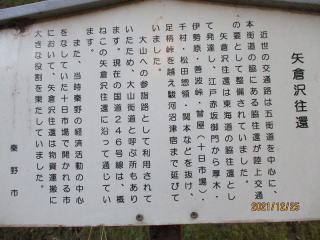 矢倉沢往還
近世の交通路は五街道を中心に、
本街道の脇にある脇往還が陸上交通
の要として整備されていました。
矢倉沢往還は東海道の脇往還とし
て発達し、江戸赤坂御門から厚木・
伊勢原・善波峠・曽屋(十日市場)・
千村・松田惣領・関本などを抜け、
足柄峠を越え駿河沼津宿まで延びて
いました。
大山への参詣路として利用されて
いたため、大山街道と呼ぶ所もあり
ます。現在の国道246号線は、概
ねこの矢倉沢往還に沿って通じてい
ます。
また、当時秦野の経済活動の中心
をなしていた十日市場で開かれる市
において、矢倉沢往還は物資運搬に
大きな役割を果たしていました。
秦野市
2021/12/25